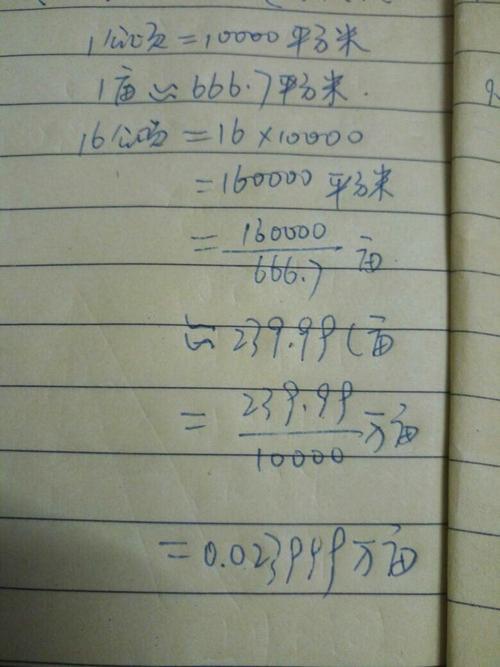 1公顷=10000平方米
1亩≈666.7平方米.
16公顷=16×10000
=160000平方米
=160000/666.7 亩
≈239.99(亩
=239.99/10000 万亩
=0.023999万亩